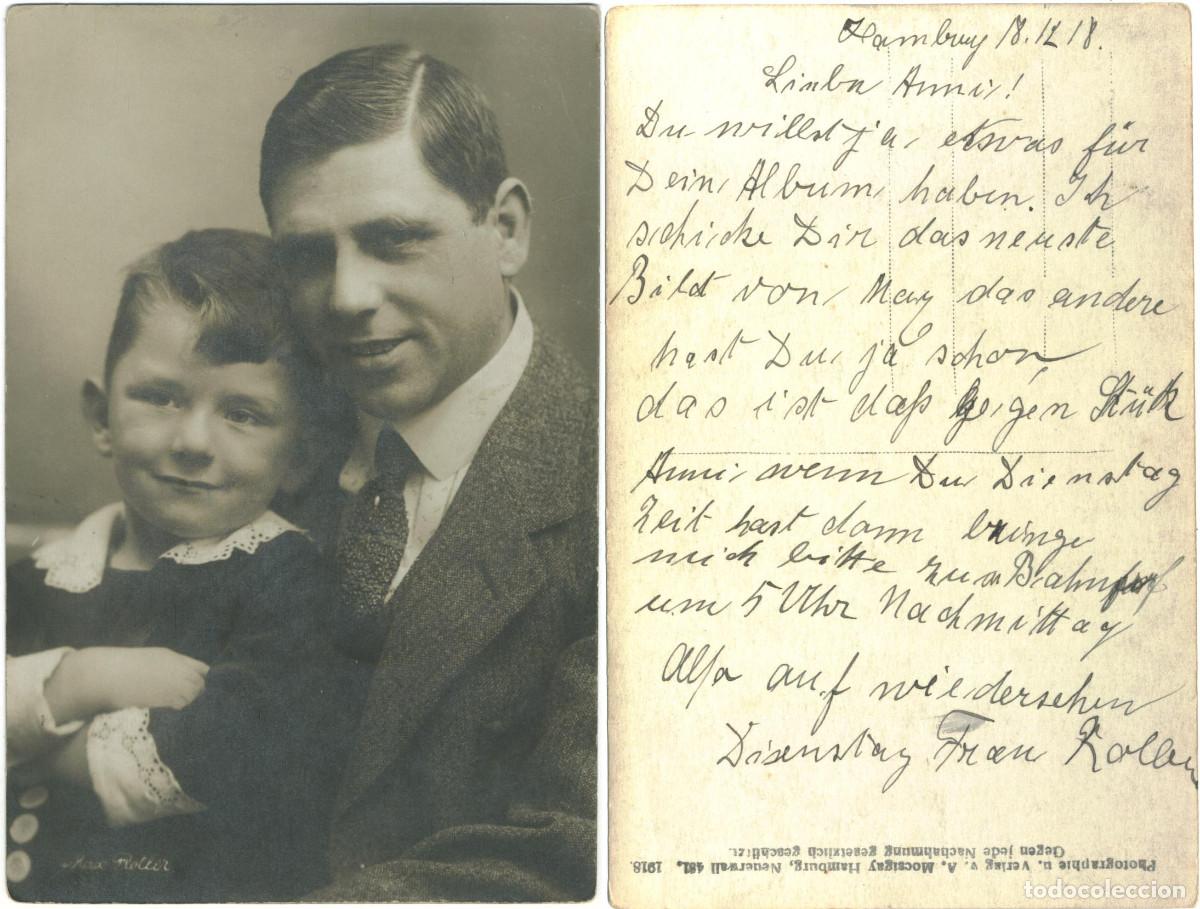 Max Roller
Hamburg 18.12.18.
Liebe Anni!
Du willst ja etwas für
Dein Album haben. Ich
schicke Dir das neuste
Bild von Max das andere
hast Du ja schon,
das ist daß Geigen Stük
Anni wenn Du Dienstag
Zeit hast dann bringe
mich bitte zum Bahnhof
um 5 Uhr Nachmittag
Also auf wiedersehen
Dienstag Frau Roller
Photographie u. Verlag v. A. Mocsigay Hamburg, Neuerwall 481. 1918.
Gegen jede Nachahmung gesetzlich geschützt.
todocoleccion